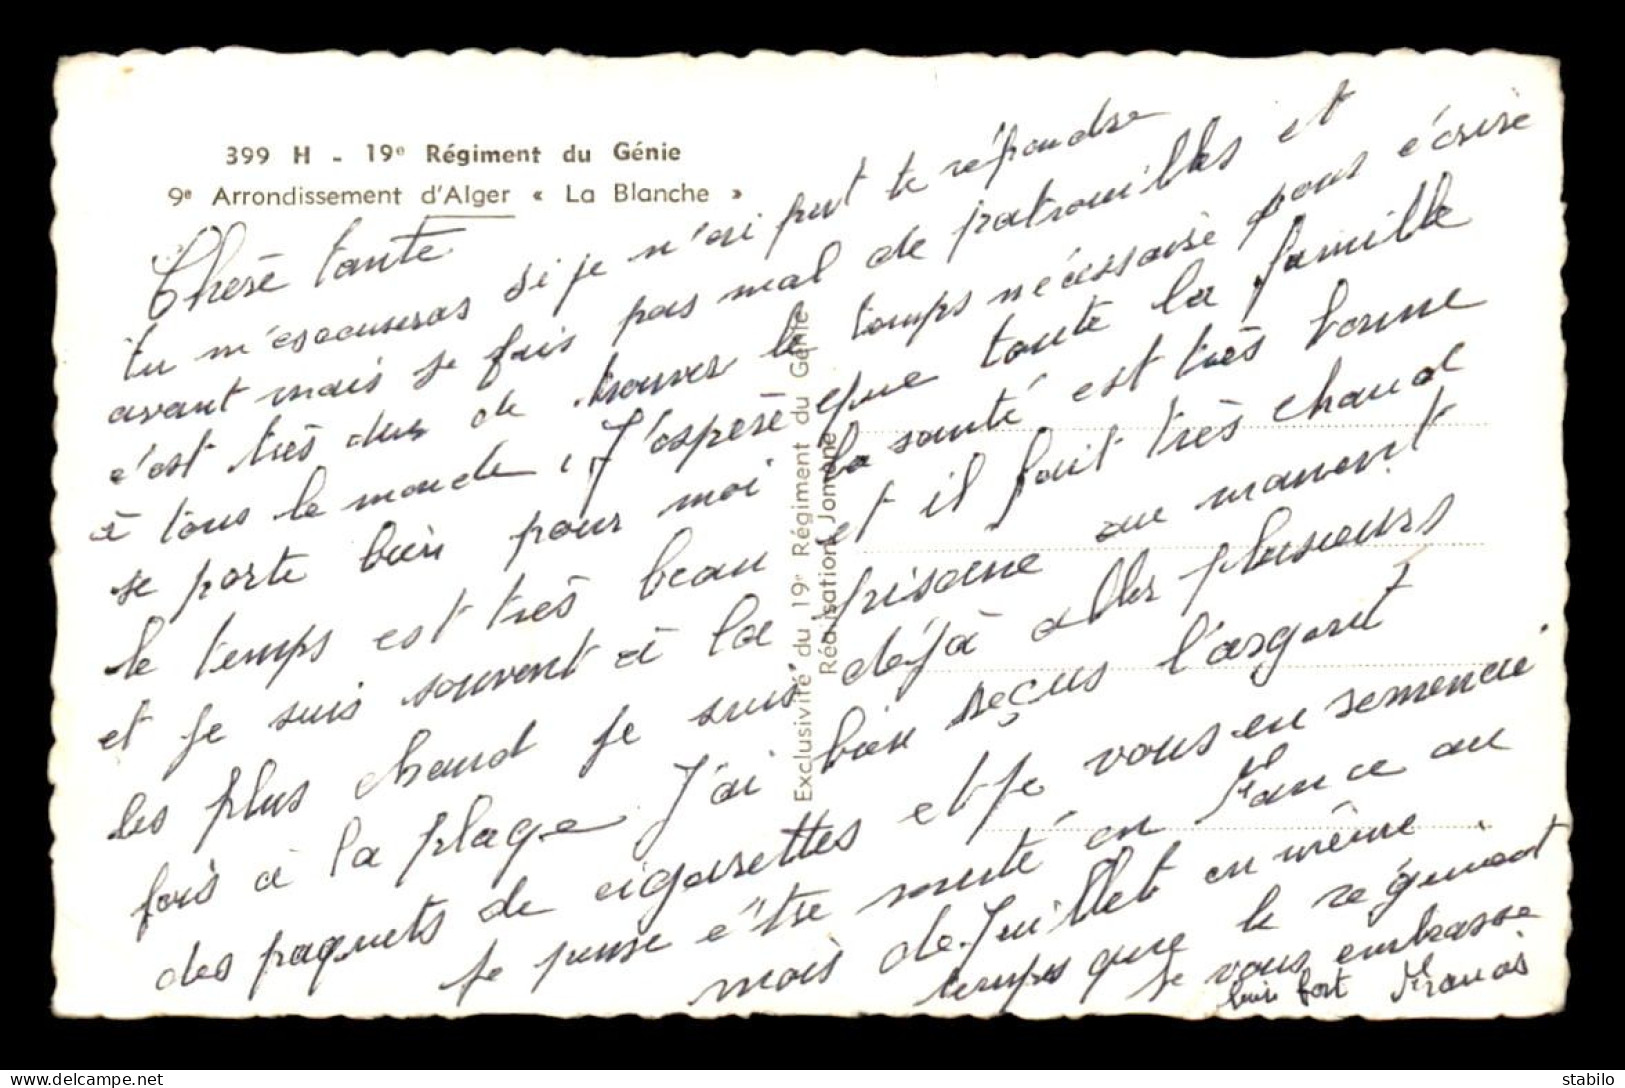 399 H - 19e Régiment du Génie
9e Arrondissement d'Alger « La Blanche »
Chère tante
tu m'escuseras si je n'ai put te répondre
avant mais je fais pas mal de patrouilles et
c'est très dur de trouver le temps nécéssaire pour écrire
à tous le monde, J'espère que toute la famille
se porte bien pour moi la santé est très bonne
le temps est très beau et il fait très chaud
et je suis souvent à la piscine au moment
les plus chaud je suis déjà aller plusieurs
fois à la plage J'ai bien reçus l'argent
des paquets de cigarettes et je vous en remercie
je pense être monté en France au
mois de Juillet en même
temps que le régiment
je vous embrasse
bien fort
Exclusivité du 19e Régiment du Génie
Réalisation Jomone
delcampe.net
stabilo